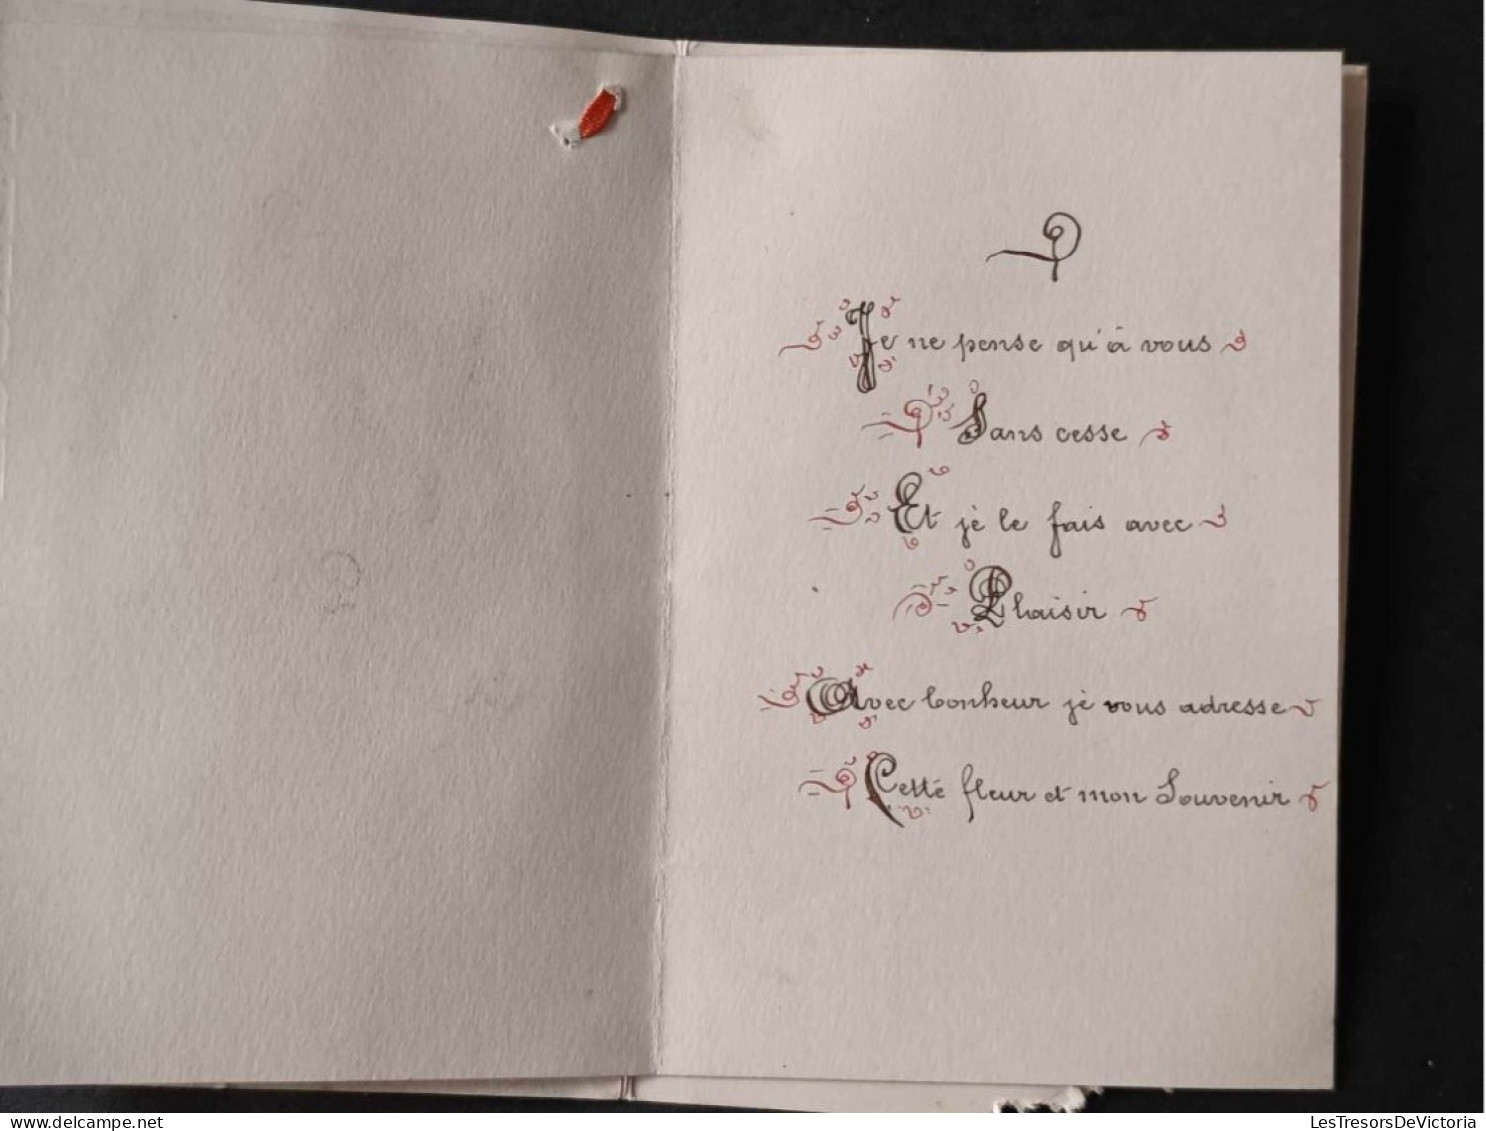 Je ne pense qu'à vous
Sans cesse
Et jè le fais avec
Plaisir
Avec bonheur jè vous adresse
Cettè fleur et mon Souvenir
LesTresorsDeVictoria